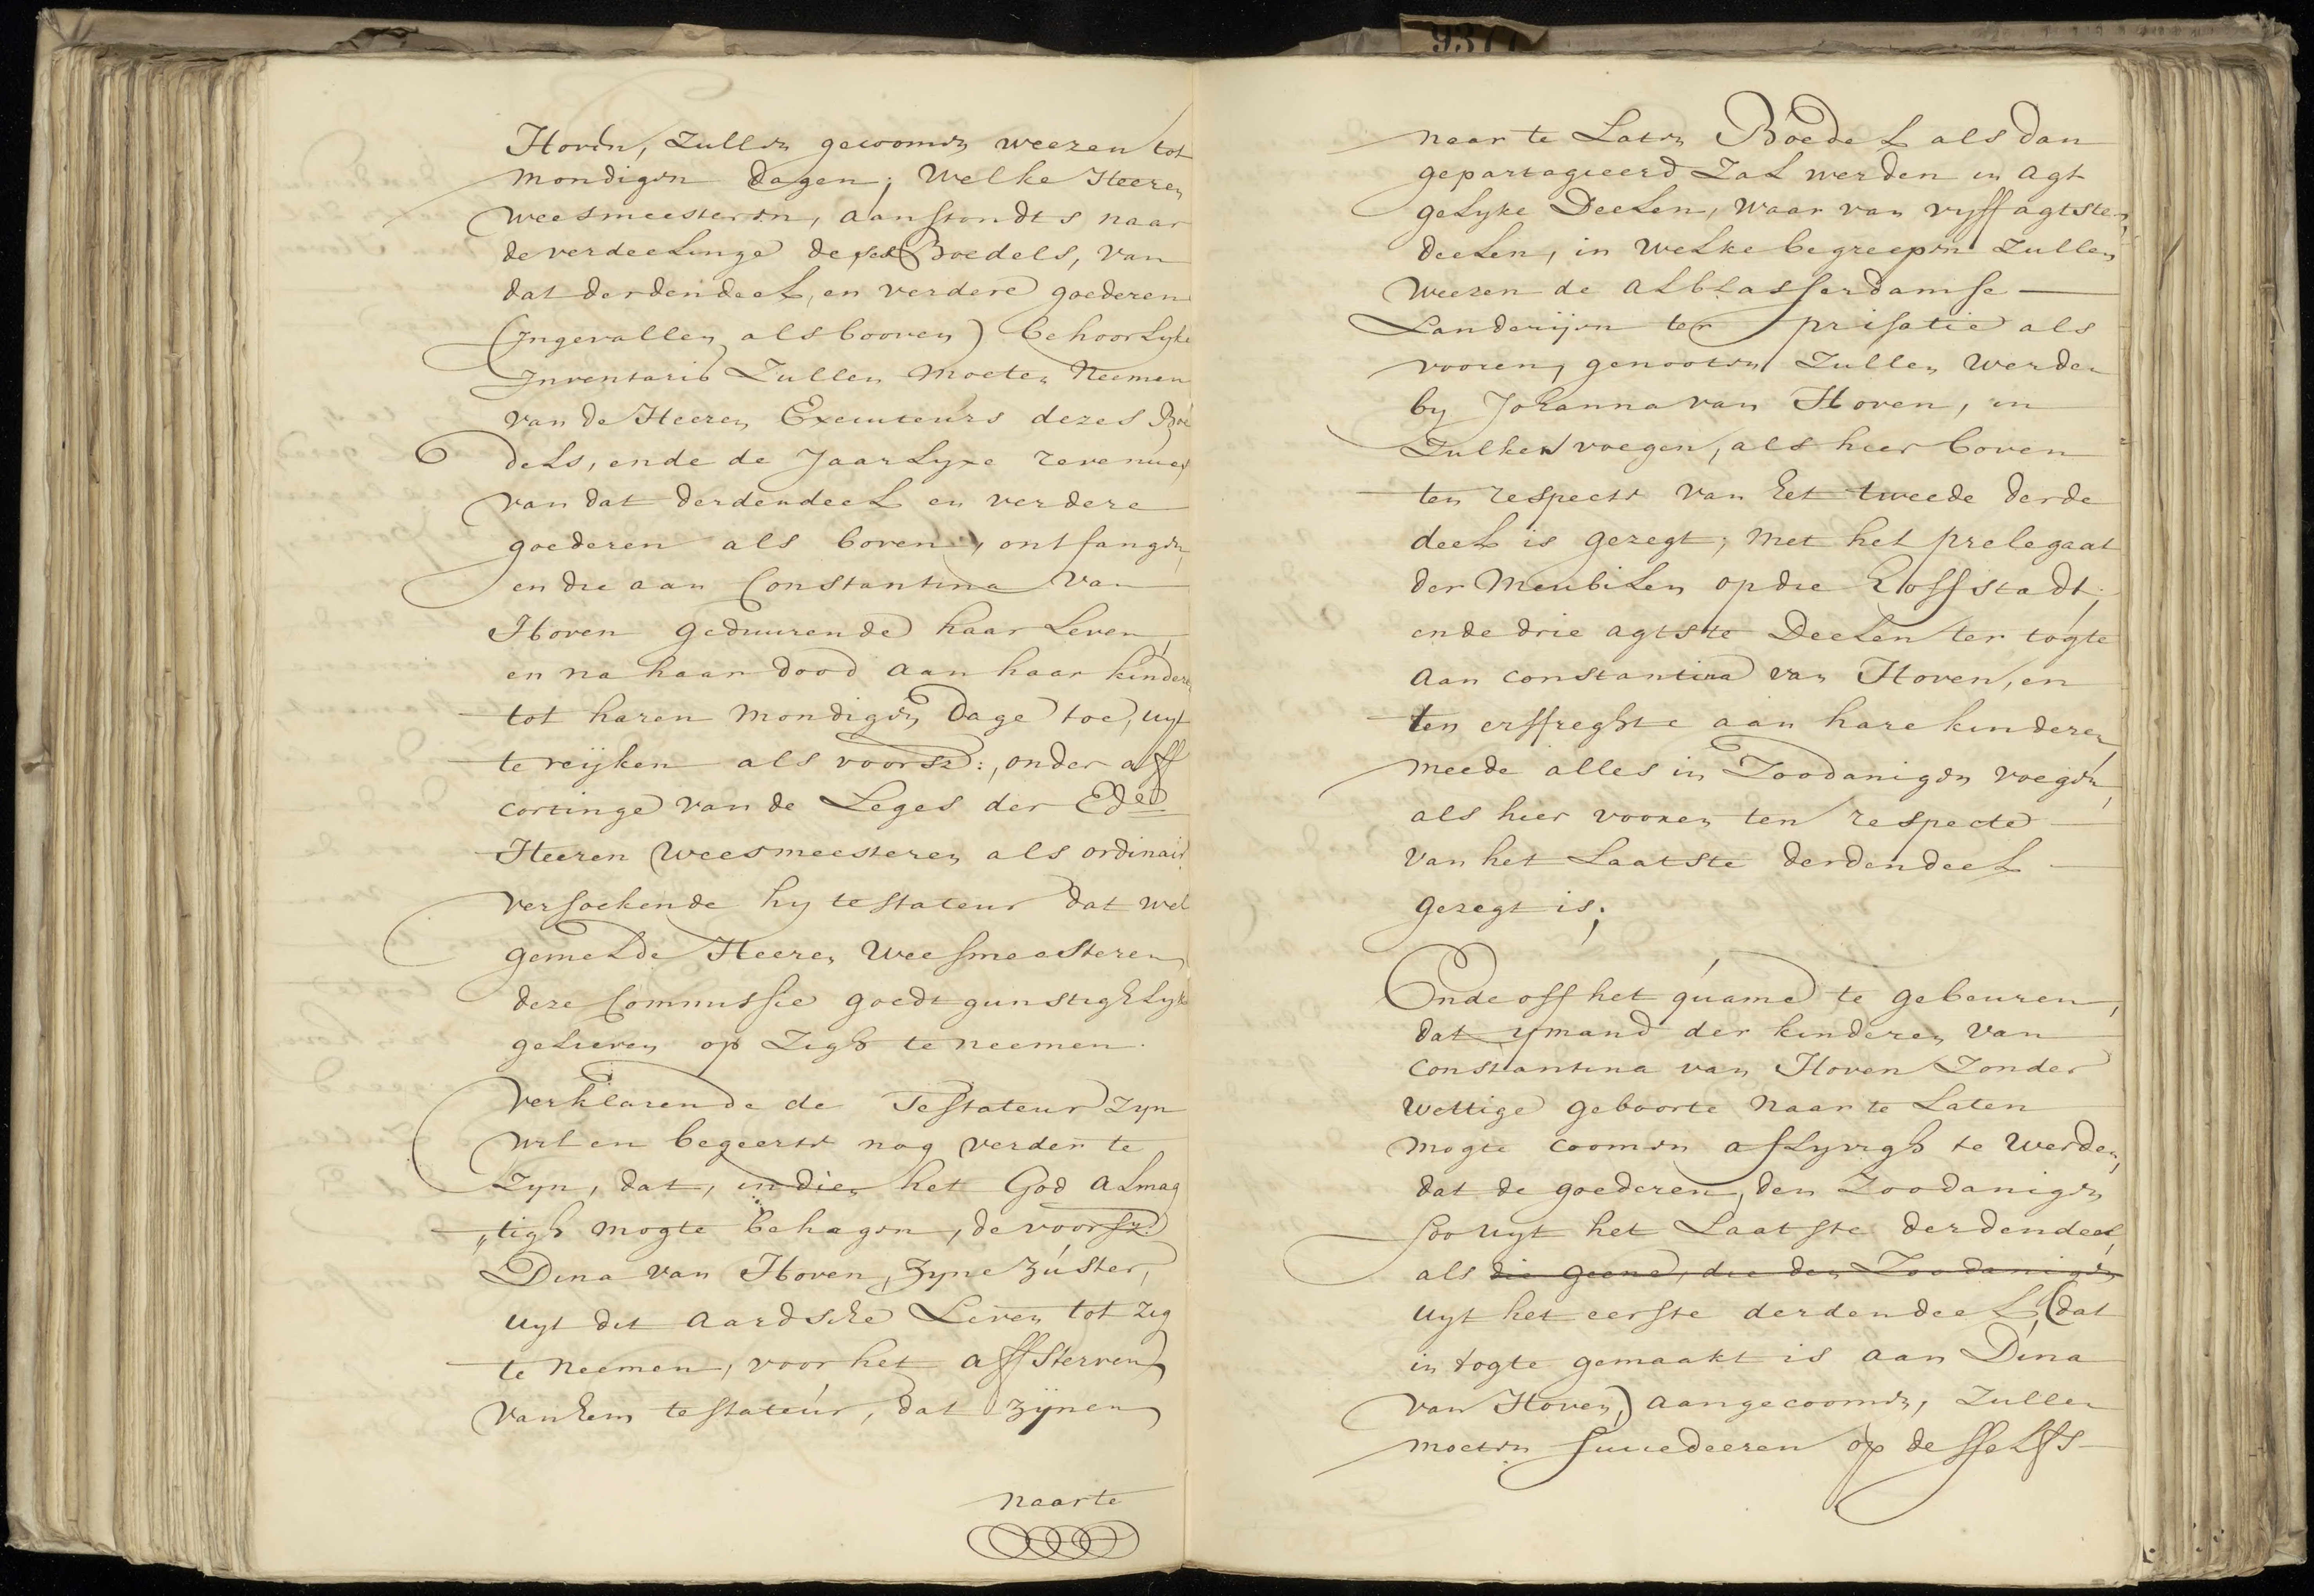 Hoven, zullen gecoomen weezen tot
mondigen dagen; welke Heeren
weesmeesteren, aanstondts naar
de verdeelinge deses Boedels, van
dat derdendeel, en verdere goederen
(Ingevallen als booven) behoorlyke
Inventaris zullen moeten neemen
van de Heeren Executeurs dezes Boe
dels, ende de Jaarlyxe revenues
van dat derdendeel en verdere
goederen als boven, ontfangen,
en die aan Constantina van
Hoven geduurende haar leven,
en na haar dood aan haar kinderen
tot haren mondigen dage toe, uyt
te reijken als voorsz:, onder aff
cortinge van de Leges der Ede
Heeren weesmeesteren als ordinair
versoekende hy testateur dat wel
gemelde Heeren weesmeesteren
deze Commissie goedtgunstighlyk
gelieven op zigh te neemen.
Verklarende de Testateur zyn
wil en begeerte nog verder te
zyn, dat, indien het God almag
„tigh mogte behagen, de voorsz:
Dina van Hoven, zyne zúster,
uyt dit aardsche Leven tot zig
te neemen, voor het affsterven
van hem testateúr, dat zijnen
naarte
9377
naar te Laten Boedel als dan
gepartagieerd zal werden in agt
gelyke Deelen, waar van vyff agtsten
deelen, in welke begreepen zullen
weezen de alblasserdamse
Landerijen ter prisatie als
vooren, genooten zullen werden
by Johanna van Hoven, in
zulken voegen, als hier boven
ten respecte van het tweede derde
deel is gezegt; met het prelegaat
der meubilen op die hoffstadt;
ende drie agtste Deelen ter togte
aan constantina van Hoven, en
ten erffreghte aan hare kinderen,
meede alles in zoodanigen voegen,
als hier vooren ten respecte
van het Laatste derdendeel
gezegt is;
Ende off het qúame te gebeuren,
dat ymand der kinderen van
constantina van Hoven zonder
wettige geboorte naar te Laten
mogte coomen aflyvigh te werden,
dat de goederen, den zoodanigen
soo uyt het Laatste derdendeel,
als die geene, die den zoodanigen
uyt het eerste derdendeel, (dat
in togte gemaakt is aan Dina
van Hoven,) aangecoomen, zullen
moeten succedeeren op desselfs